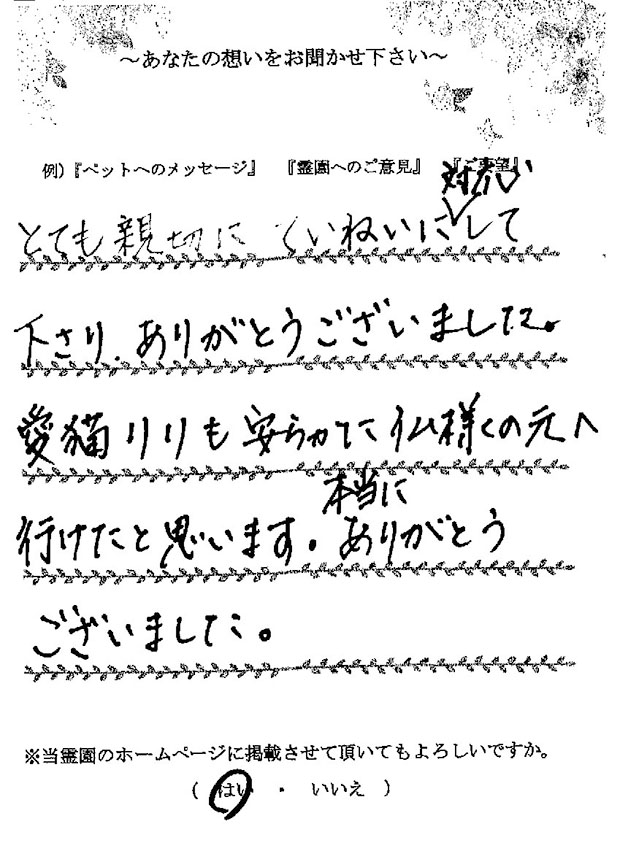 ～あなたの想いをお聞かせ下さい～
例）『ペットへのメッセージ』 『霊園へのご意見』 『ご要望』
とても親切に ていねいに対応して
下さり、ありがとうございました。
愛猫リリも安らかに仏様の元へ
行けたと思います。本当にありがとう
ございました。
※当霊園のホームページに掲載させて頂いてもよろしいですか。
（ はい ・ いいえ ）